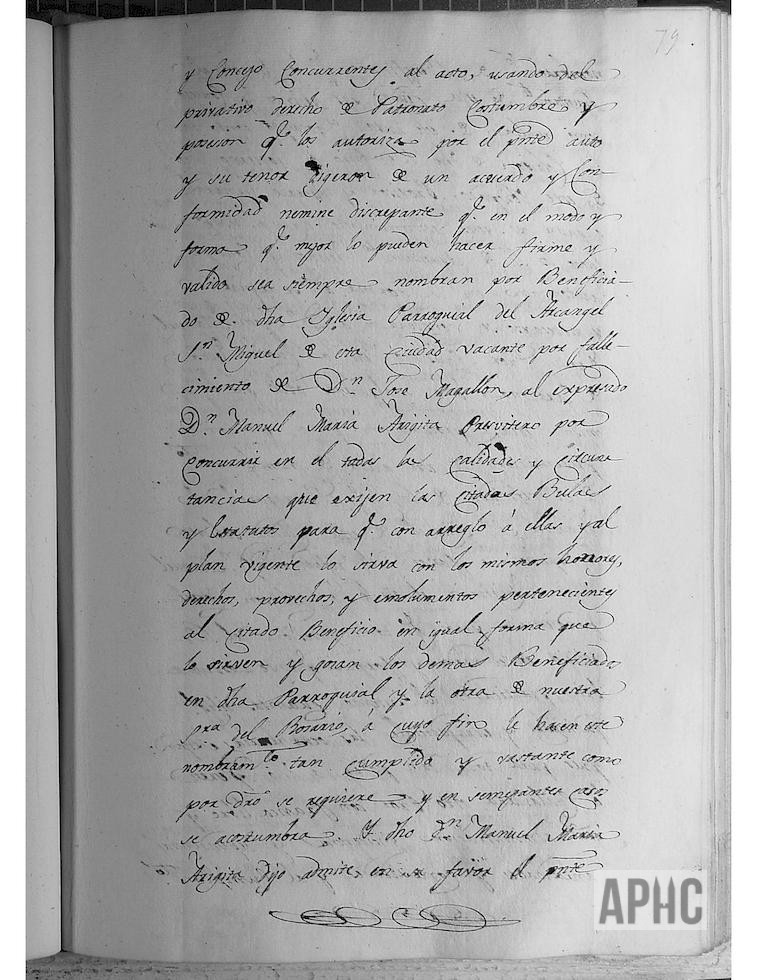 79
y Concejo Concurrentes al acto, usando del
privativo derecho de Patronato Costumbre y
posesion q.e los autoriza por el pnte auto
y su tenor digeron de un acuerdo y Con-
formidad nemine discrepante q.e en el modo y
forma q.e mejor lo pueden hacer firme y
valido sea siempre nombran por Beneficia-
do de dha Yglesia Parroquial del Arcangel
S.n Miguel de esta Ciudad vacante por falle-
cimiento de D.n Jose Magallon, al expresado
D.n Manuel Maria Arigita Presvitero por
Concurrir en el todas las calidades y circuns
tancias que exijen las citadas Bulas
y Estatutos para q.e con arreglo á ellas y al
plan vigente lo sirva con los mismos honores,
derechos, provechos, y emolumentos pertenecientes
al citado Beneficio en igual forma que
lo sirven y goian los demas Beneficiados
en dha Parroquial y la otra de nuestra
Sra del Rosario, á cuyo fin le hacen este
nombram.to tan cumplido y vastante como
por dro se requiere y en semejantes casos
se acostumbra. Y dho D.n Manuel Maria
Arigita dijo admite en su favor el pnte
APHC